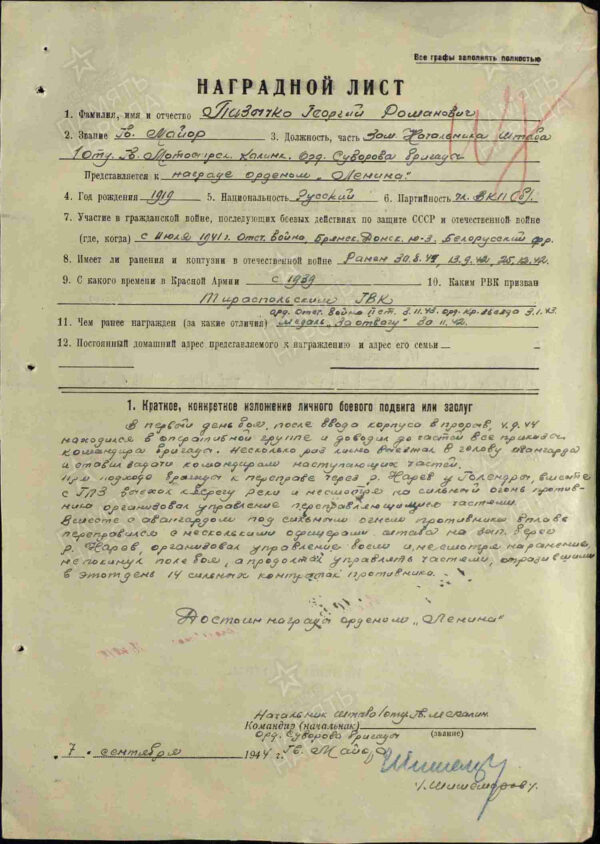 Все графы заполнять полностью
НАГРАДНОЙ ЛИСТ
1. Фамилия, имя и отчество Пазычко Георгий Романович
2. Звание Гв. Майор 3. Должность, часть Зам. Начальника штаба
1 Отд. Гв. Мотострел. Калинк. Орд. Суворова бригады
Представляется к награде орденом „Ленина"
4. Год рождения 1919 5. Национальность Русский 6. Партийность чл. ВКП(б)
7. Участие в гражданской войне, последующих боевых действиях по защите СССР и отечественной войне
(где, когда) с июля 1941 г. Отст. война, Брянск. Донск. Ю-З, Белорусский фр.
8. Имеет ли ранения и контузии в отечественной войне Ранен 13.9.42, 25.12.42.
9. С какого времени в Красной Армии с 1939 10. Каким РВК призван
Тираспольским ГВК
орд. Отст. война II ст. орд. Кр. звезда
11. Чем ранее награжден (за какие отличия) медаль „За отвагу" 11.42.
12. Постоянный домашний адрес представляемого к награждению и адрес его семьи
1. Краткое, конкретное изложение личного боевого подвига или заслуг
В первый день боя, после ввода корпуса в прорыв, 4.9.44
находился в оперативной группе и доводил до частей все приказы
командира бригады. Несколько раз лично выезжал в голову авангарда
и ставил задачи командирам наступающих частей.
При подходе бригады к переправе через р. Нарев у вместе
с ГПЗ выехал к берегу реки и несмотря на сильный огонь против-
ника организовал управление переправляющимися частями.
Вместе с авангардом под сильным огнем противника вплавь
переправился с несколькими офицерами штаба на зап. берег
р. Нарев, организовал управление боем и, несмотря на ранение,
не покинул поле боя, а продолжал управлять частями, отразившими
в этот день 14 сильных контратак противника.
Достоин награды орденом „Ленина"
Начальник штаба 1 отд. Гв. мс калин.
Командир (начальник)
Орд. Суворова бригады (звание)
„7" сентября 1944 г. Гв. Майор